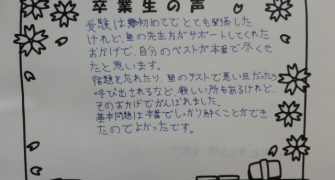 卒業生の声
受験は初めてでとても緊張した
けれど、塾の先生方がサポートしてくれた
おかげで、自分のベストが本番で尽くせ
たと思います。
宿題を忘れたり、塾のテストで悪い点だったら
呼び出されるなど、厳しい所もあるけれど、
そのおかげでがんばれました。
基本問題は本番でしっかり解くことができ
たのでよかったです。